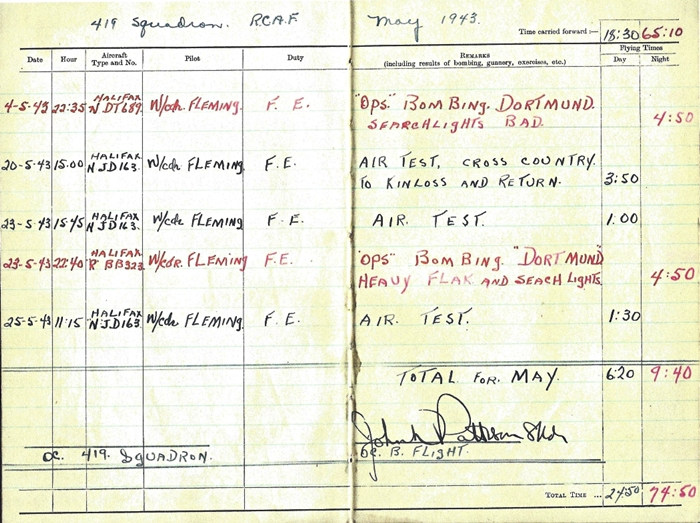 419 Squadron. R.C.A.F. May 1943.
Time carried forward :— 18:30 65:10
Date Hour Aircraft Type and No. Pilot Duty REMARKS (including results of bombing, gunnery, exercises, etc.) Flying Times Day Night
4-5-43 22:35 HALIFAX N DT689. W/cdr. FLEMING. F. E. "OPS" BOMBING. DORTMUND.
SEARCHLIGHTS BAD. 4:50
20-5-43 15.00 HALIFAX N JD163. W/cdr FLEMING. F.E. AIR TEST, CROSS COUNTRY.
TO KINLOSS AND RETURN. 3:50
23-5-43 15:45 HALIFAX N JD163. W/cdr FLEMING. F.E. AIR. TEST. 1.00
23-5-43 22:40 HALIFAX R BB323. W/cdr. FLEMING F.E. "OPS" BOMBING. "DORTMUND"
HEAVY FLAK AND SEACH LIGHTS. 4:50
25-5-43 11:15 HALIFAX N JD163. W/cdr FLEMING. F.E. AIR. TEST. 1:30
TOTAL FOR MAY. 6:20 9:40
OC. 419. SQUADRON. OC. B. FLIGHT.
TOTAL TIME ... 24:50 74:50